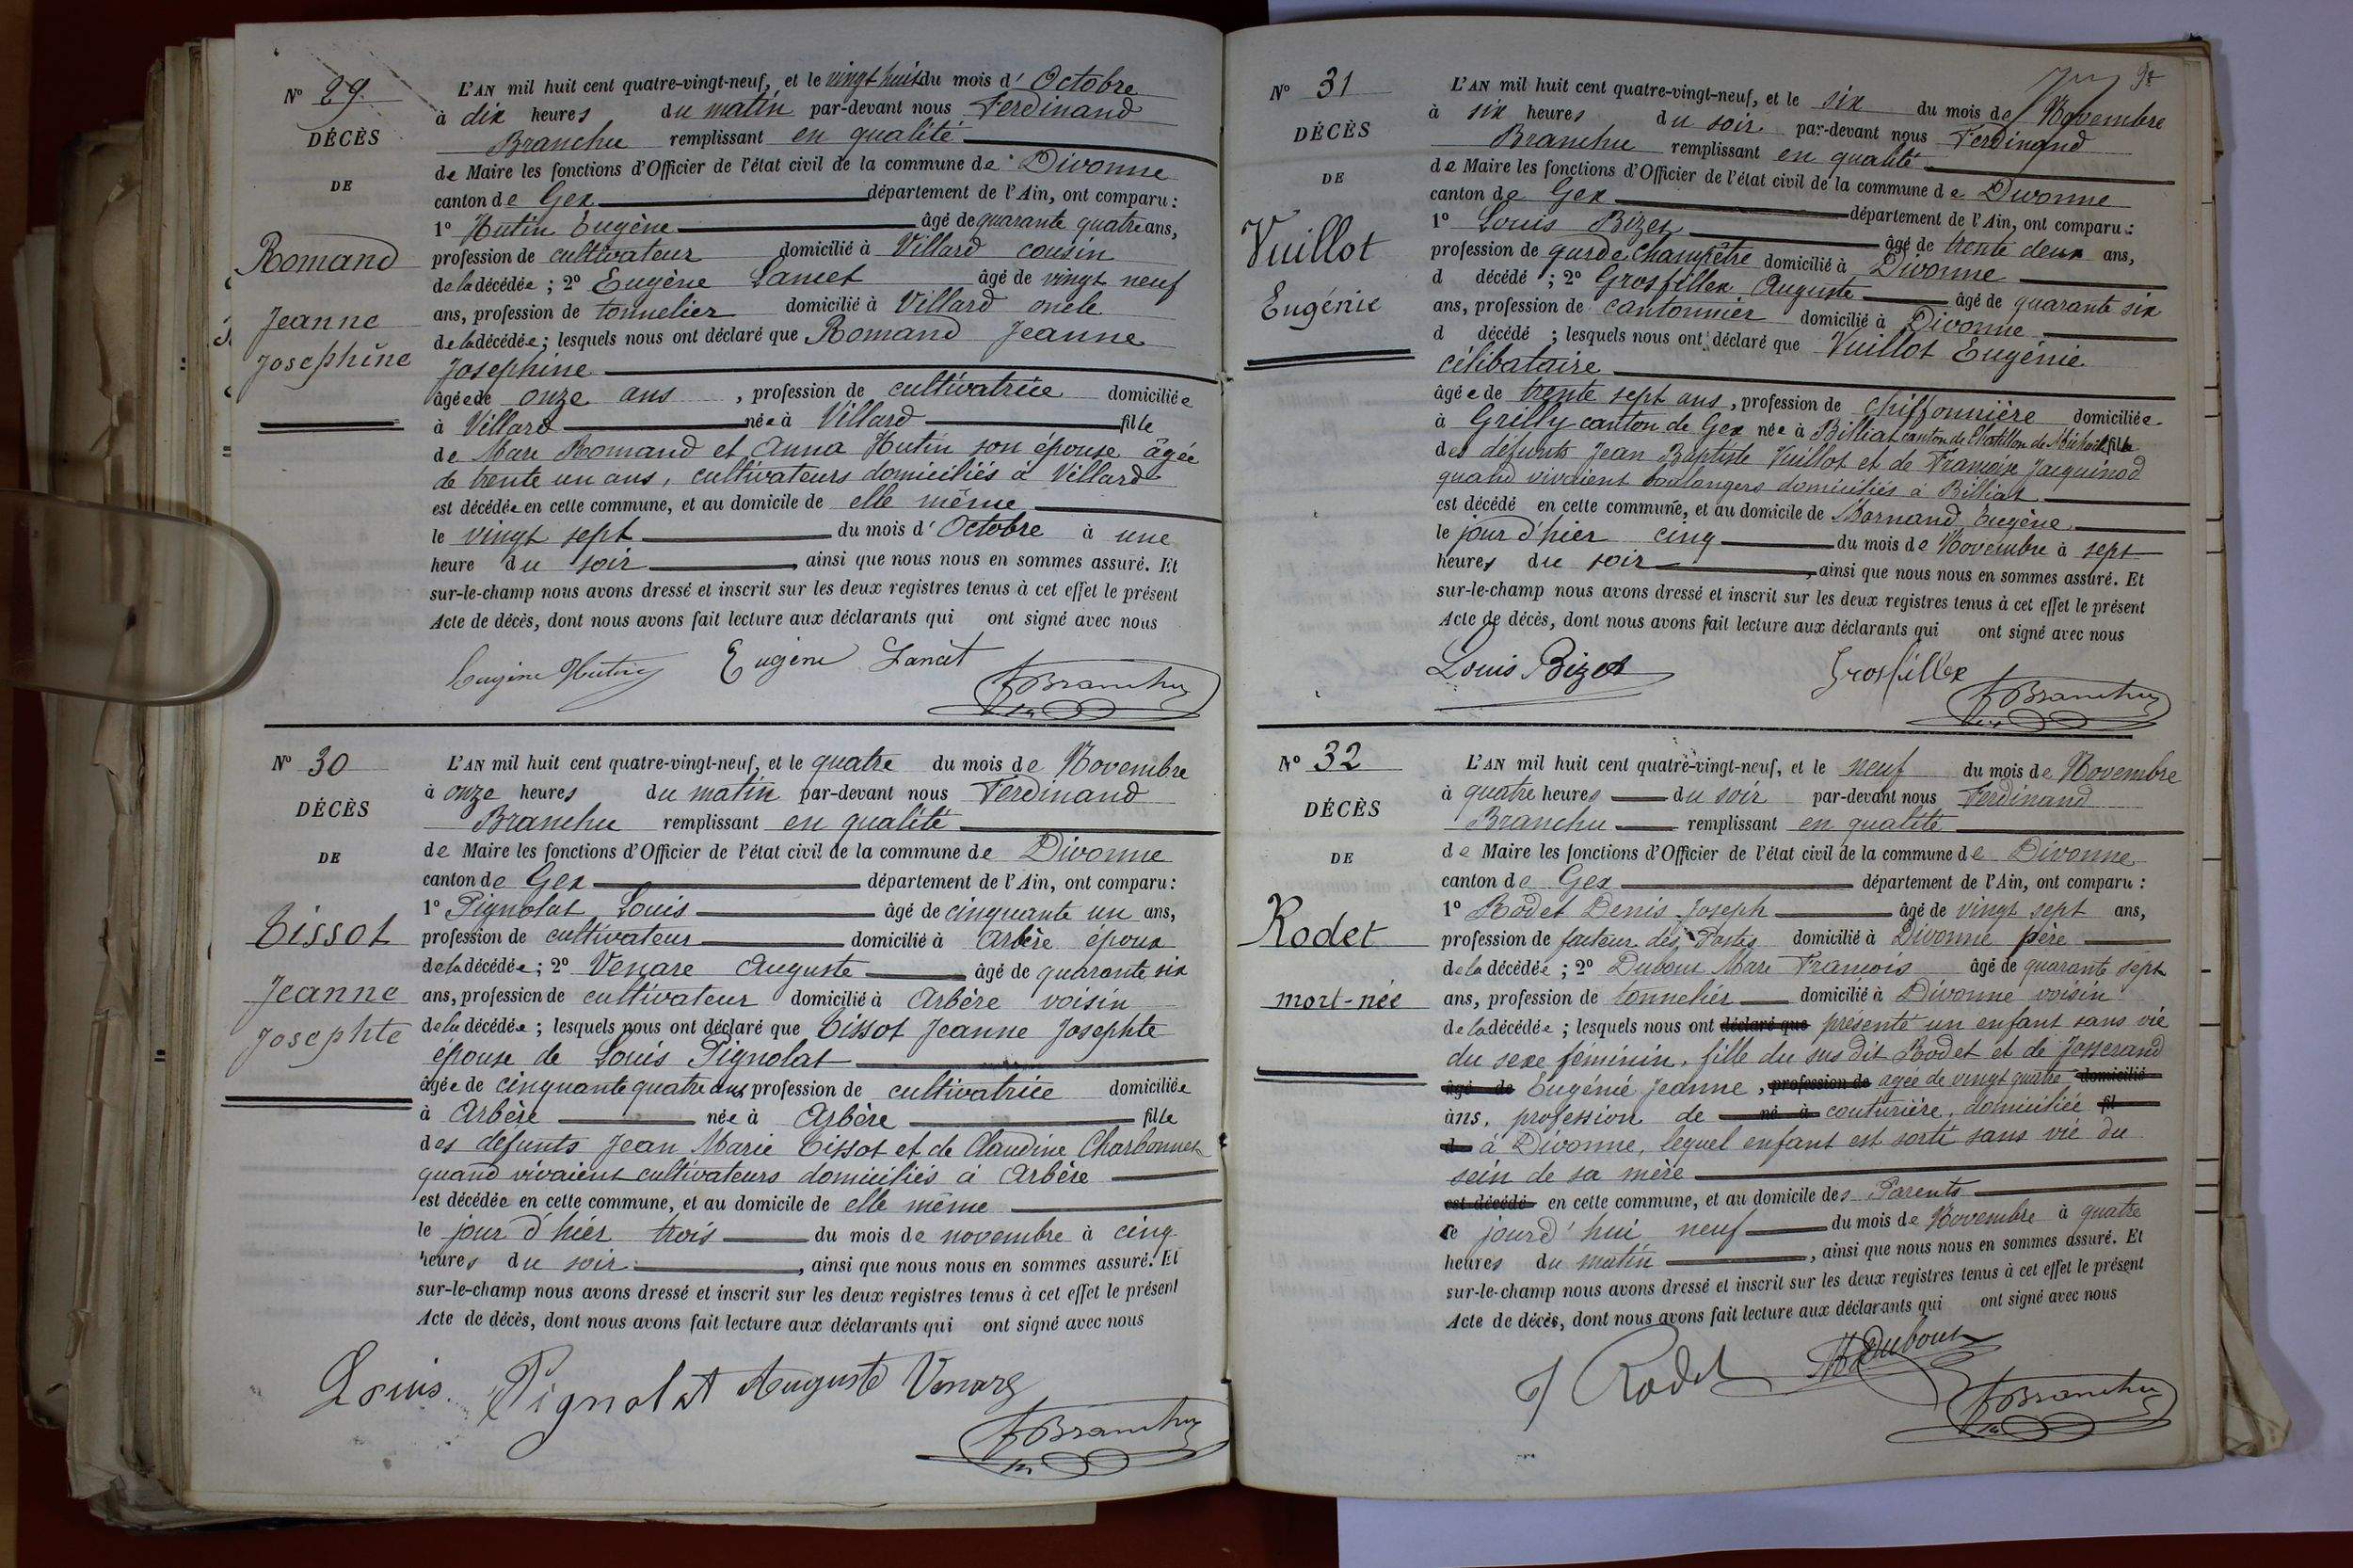 N° 29
DÉCÈS
DE
Romand
Jeanne
Josephine
L'AN mil huit cent quatre-vingt-neuf, et le vingt huit du mois d' Octobre
à dix heures du matin par-devant nous Ferdinand
Branchu remplissant en qualité
de Maire les fonctions d'Officier de l'état civil de la commune de Divonne
canton de Gex département de l'Ain, ont comparu :
1° Hutin Eugène âgé de quarante quatre ans,
profession de cultivateur domicilié à Villard cousin
de la décédée ; 2° Eugène Lancet âgé de vingt neuf
ans, profession de tonnelier domicilié à Villard oncle
de la décédée ; lesquels nous ont déclaré que Romand Jeanne
Josephine
âgée de onze ans , profession de cultivatrice domiciliée
à Villard née à Villard fille
de Marc Romand et Anna Hutin son épouse âgée
de trente un ans, cultivateurs domiciliés à Villard
est décédée en cette commune, et au domicile de elle même
le vingt sept du mois d' Octobre à une
heure du soir , ainsi que nous nous en sommes assuré. Et
sur-le-champ nous avons dressé et inscrit sur les deux registres tenus à cet effet le présent
Acte de décès, dont nous avons fait lecture aux déclarants qui ont signé avec nous
Eugène Hutin Eugène Lancet
F Branchu
N° 30
DÉCÈS
DE
Tissot
Jeanne
Josephte
L'AN mil huit cent quatre-vingt-neuf, et le quatre du mois de Novembre
à onze heures du matin par-devant nous Ferdinand
Branchu remplissant en qualité
de Maire les fonctions d'Officier de l'état civil de la commune de Divonne
canton de Gex département de l'Ain, ont comparu :
1° Pignolat Louis âgé de cinquante un ans,
profession de cultivateur domicilié à Arbère époux
de la décédée ; 2° Venare Auguste âgé de quarante six
ans, profession de cultivateur domicilié à Arbère voisin
de la décédée ; lesquels nous ont déclaré que Tissot Jeanne Josephte
épouse de Louis Pignolat
âgée de cinquante quatre ans, profession de cultivatrice domiciliée
à Arbère née à Arbère fille
des défunts Jean Marie Tissot et de Claudine Charbonnet
quand vivaient cultivateurs domiciliés à Arbère
est décédée en cette commune, et au domicile de elle même
le jour d'hier trois du mois de novembre à cinq
heures du soir , ainsi que nous nous en sommes assuré. Et
sur-le-champ nous avons dressé et inscrit sur les deux registres tenus à cet effet le présent
Acte de décès, dont nous avons fait lecture aux déclarants qui ont signé avec nous
Louis Pignolat Auguste Venare
F Branchu
N° 31
DÉCÈS
DE
Vuillot
Eugénie
L'AN mil huit cent quatre-vingt-neuf, et le six du mois de Novembre
à six heures du soir par-devant nous Ferdinand
Branchu remplissant en qualité
de Maire les fonctions d'Officier de l'état civil de la commune de Divonne
canton de Gex département de l'Ain, ont comparu :
1° Louis Bizet âgé de trente deux ans,
profession de garde champêtre domicilié à Divonne
d décédé ; 2° Grosfillex Auguste âgé de quarante six
ans, profession de cantonnier domicilié à Divonne
d décédé ; lesquels nous ont déclaré que Vuillot Eugénie
célibataire
âgée de trente sept ans, profession de chiffonnière domiciliée
à Grilly canton de Gex née à Billiat canton de Chatillon de Michaille fille
des défunts Jean Baptiste Vuillot et de Françoise Jacquinod
quand vivaient boulangers domiciliés à Billiat
est décédé en cette commune, et au domicile de Mornand Eugène
le jour d'hier cinq du mois de Novembre à sept
heures du soir , ainsi que nous nous en sommes assuré. Et
sur-le-champ nous avons dressé et inscrit sur les deux registres tenus à cet effet le présent
Acte de décès, dont nous avons fait lecture aux déclarants qui ont signé avec nous
Louis Bizet Grosfillex
F Branchu
N° 32
DÉCÈS
DE
Rodet
mort-née
L'AN mil huit cent quatre-vingt-neuf, et le neuf du mois de Novembre
à quatre heures du soir par-devant nous Ferdinand
Branchu remplissant en qualité
de Maire les fonctions d'Officier de l'état civil de la commune de Divonne
canton de Gex département de l'Ain, ont comparu :
1° Rodet Denis Joseph âgé de vingt sept ans,
profession de facteur des Postes domicilié à Divonne père
de la décédée ; 2° Dubout Marc François âgé de quarante sept
ans, profession de tonnelier domicilié à Divonne voisin
de la décédée ; lesquels nous ont déclaré que présenté un enfant sans vie
du sexe féminin, fille du sus dit Rodet et de Josserand
âgé de Eugénie Jeanne, profession de agée de vingt quatre domicilié
ans, profession de né à couturière, domiciliée fil
d à Divonne, lequel enfant est sorti sans vie du
sein de sa mère
est décédé en cette commune, et au domicile des Parents
le jourd'hui neuf du mois de Novembre à quatre
heures du matin , ainsi que nous nous en sommes assuré. Et
sur-le-champ nous avons dressé et inscrit sur les deux registres tenus à cet effet le présent
Acte de décès, dont nous avons fait lecture aux déclarants qui ont signé avec nous
J Rodet M Dubout
F Branchu